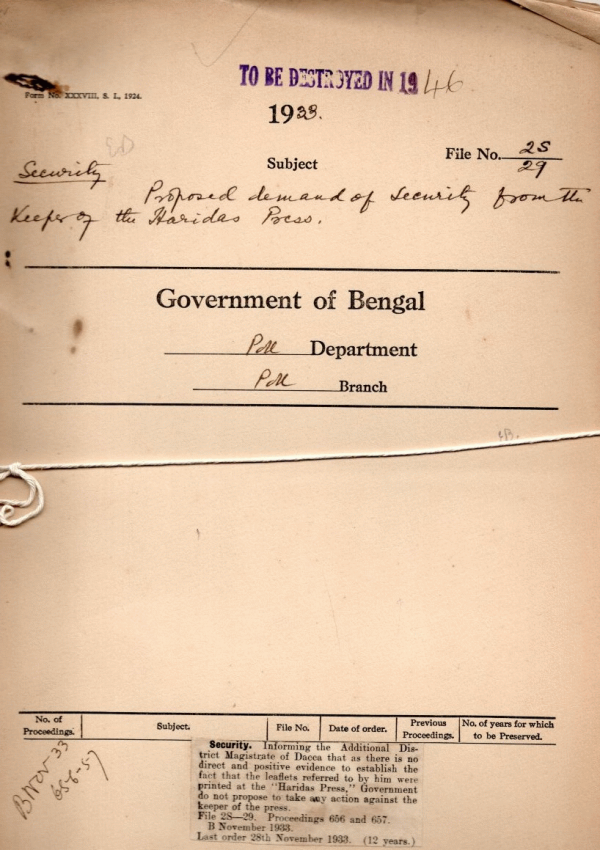 TO BE DESTROYED IN 1946
Form No. XXXVIII, S. L., 1924.
1933.
File No. 2S/29
Subject
Security
Proposed demand of Security from the
Keeper of the Haridas Press.
Government of Bengal
Poll Department
Poll Branch
No. of Proceedings. Subject. File No. Date of order. Previous Proceedings. No. of years for which to be Preserved.
B Nov-33
656-57
Security. Informing the Additional Dis-
trict Magistrate of Dacca that as there is no
direct and positive evidence to establish the
fact that the leaflets referred to by him were
printed at the "Haridas Press," Government
do not propose to take any action against the
keeper of the press.
File 2S—29. Proceedings 656 and 657.
B November 1933.
Last order 28th November 1933. (12 years.)